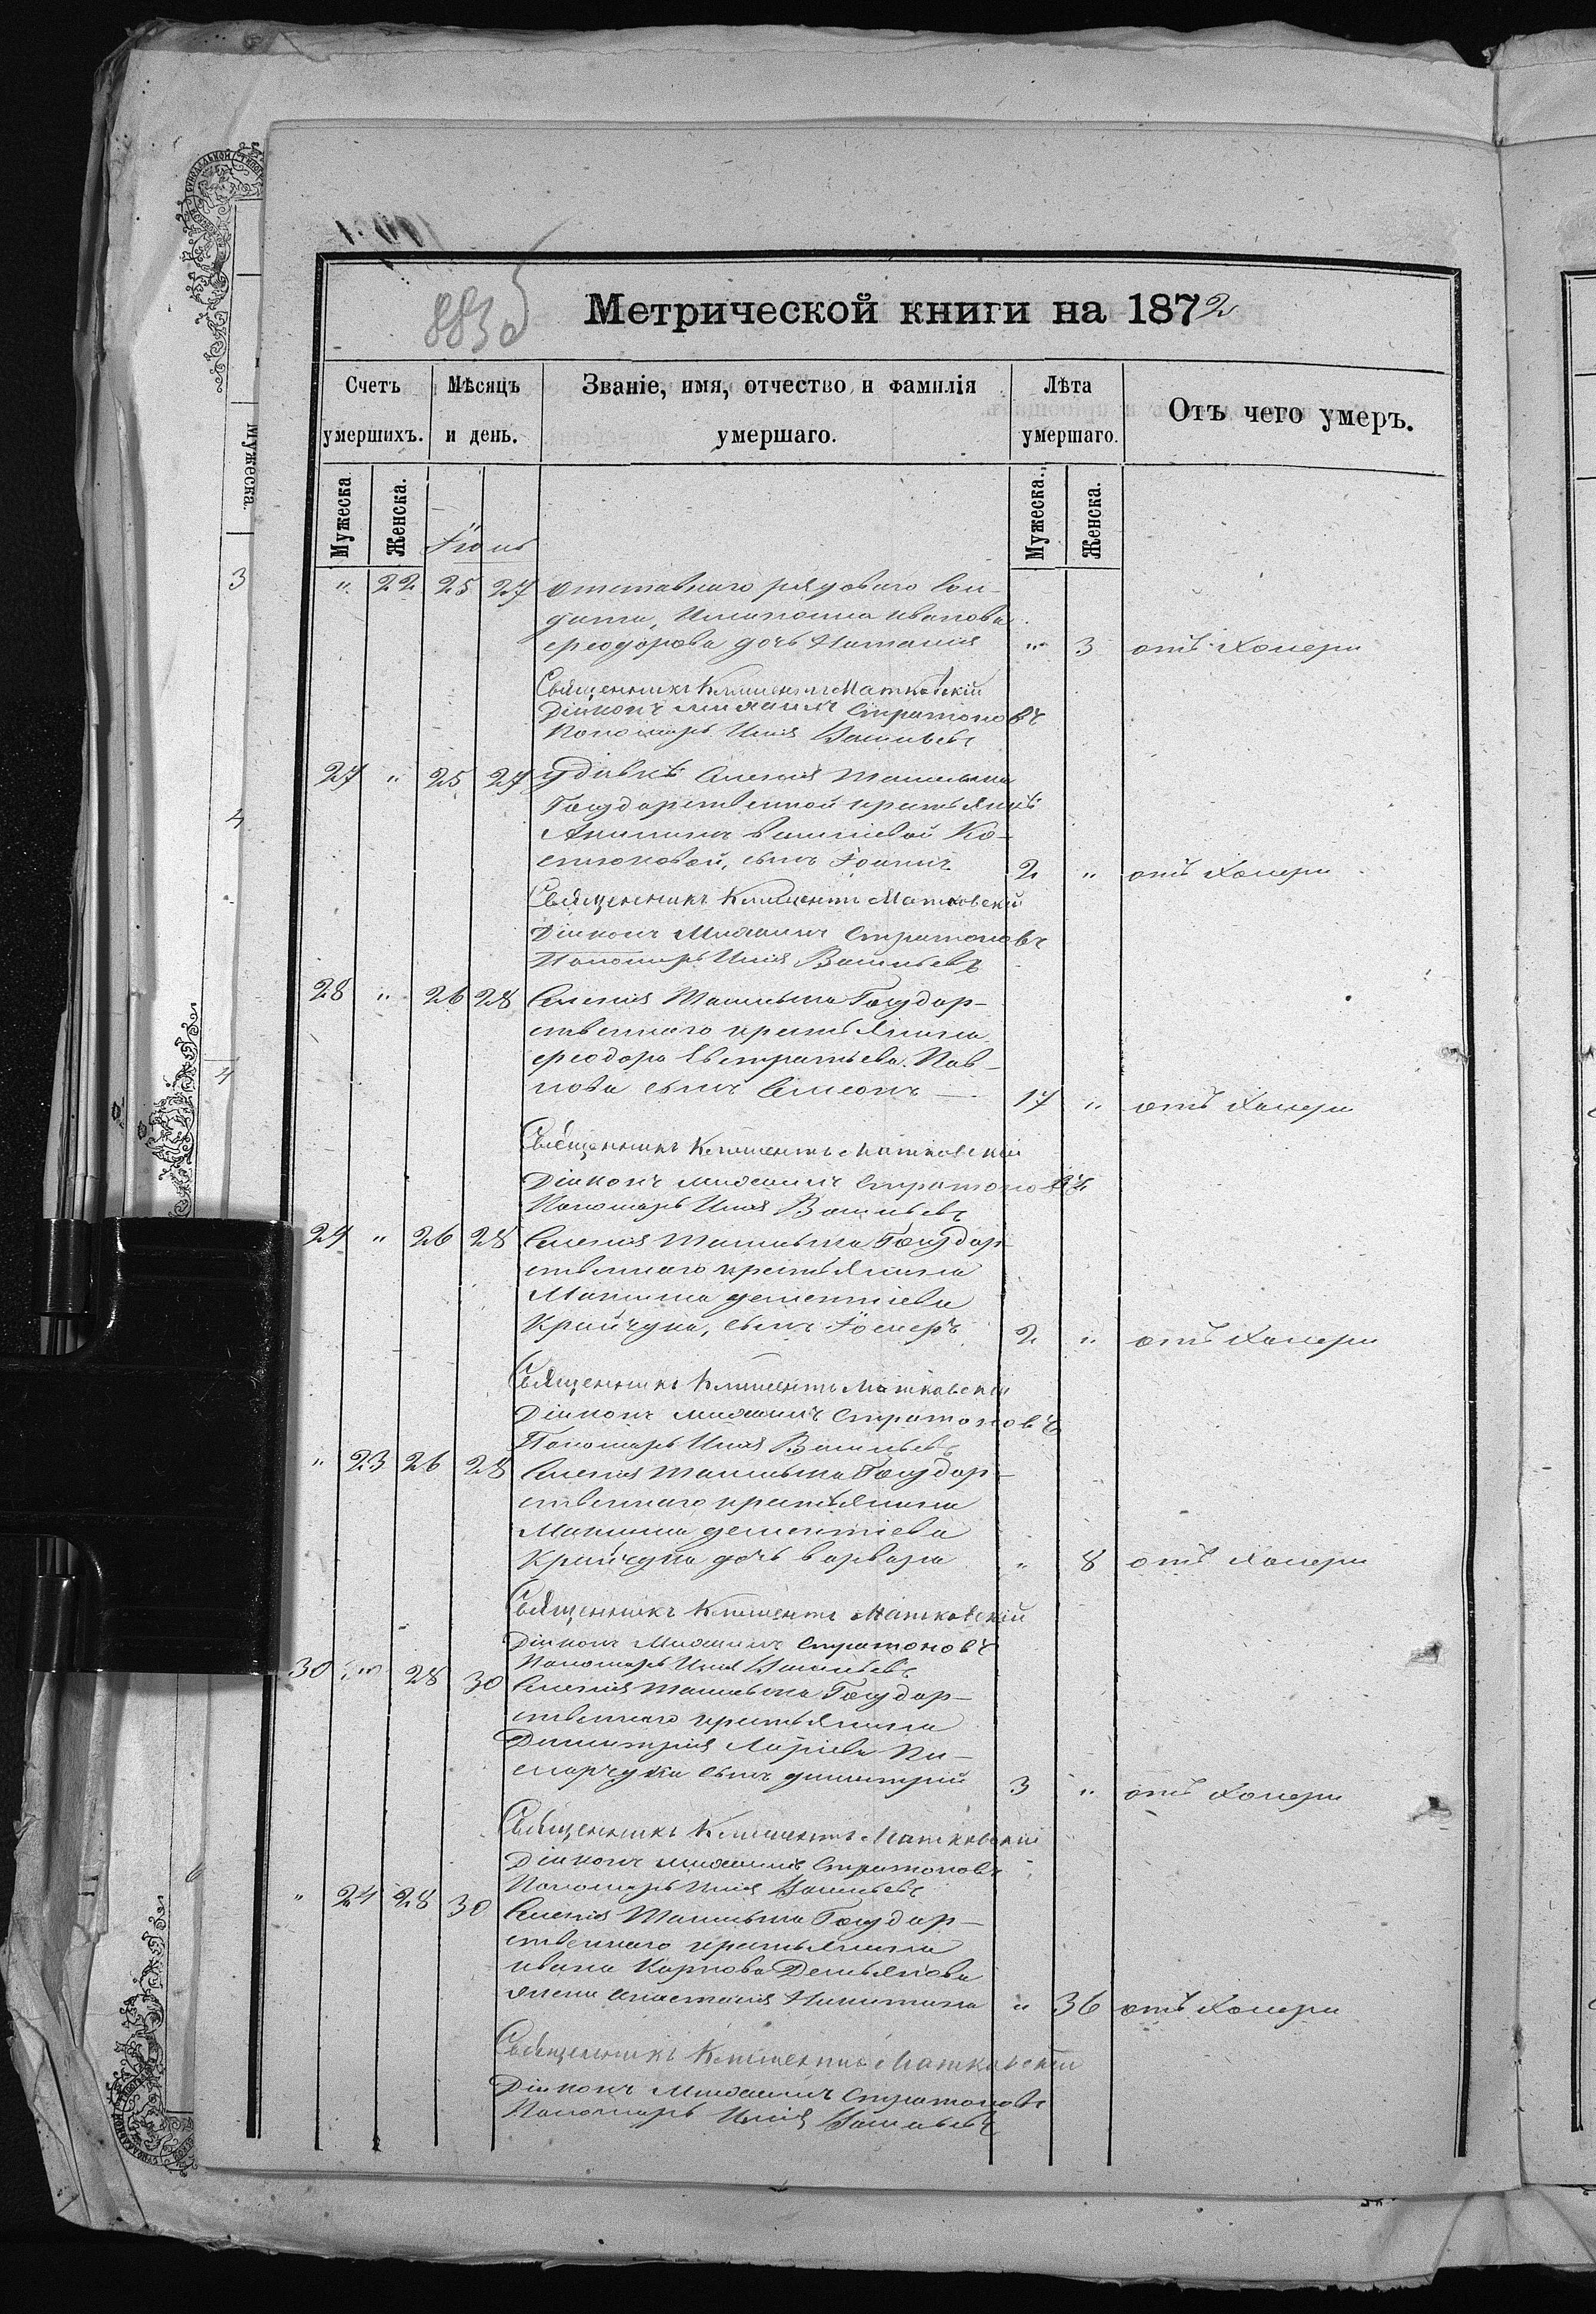 883 б
Метрической книги на 1872
Счетъ умершихъ.
Мѣсяцъ и день.
Званіе, имя, отчество и фамилія умершаго.
Лѣта умершаго.
Отъ чего умеръ.
Мужеска
Женска.
Мужеска.
Женска.
Іюнь
" 22 25 27 отставнаго рядоваго Сол-
дата, Иванова
Ѳеодорова дочь Наталія " 3 отъ Холеры
Священникъ Климентъ Матковскій
Діаконъ Михаилъ Стратоновъ
Пономарь Илія Васильевъ
27 " 25 27 удовы Селенія
Государственной крестьянки
Василіевой Ко-
стюковой, сынъ Іоаннъ 2 " отъ Холеры
Священникъ Климентъ Матковскій
Діаконъ Михаилъ Стратоновъ
Пономарь Илія Васильевъ
28 " 26 28 Селенія Государ-
ственнаго крестьянина
Ѳеодора Евстратьева Пав-
лова сынъ Симеонъ 17 " отъ Холеры
Священникъ Климентъ Матковскій
Діаконъ Михаилъ Стратоновъ
Пономарь Илія Васильевъ
29 " 26 28 Селенія Государ-
ственнаго крестьянина
Максима Дементіева
Крайчука, сынъ 2 " отъ Холеры
Священникъ Климентъ Матковскій
Діаконъ Михаилъ Стратоновъ
Пономарь Илія Васильевъ
" 23 26 28 Селенія Государ-
ственнаго крестьянина
Максима Дементіева
Крайчука дочь Варвара " 8 отъ Холеры
Священникъ Климентъ Матковскій
Діаконъ Михаилъ Стратоновъ
Пономарь Илія Васильевъ
30 " 28 30 Селенія Государ-
ственнаго крестьянина
Димитрія
сынъ Димитрій 3 " отъ Холеры
Священникъ Климентъ Матковскій
Діаконъ Михаилъ Стратоновъ
Пономарь Илія Васильевъ
" 24 28 30 Селенія Государ-
ственнаго крестьянина
Ивана Карпова Демьянова
жена Анастасія Никитина " 36 отъ Холеры
Священникъ Климентъ Матковскій
Діаконъ Михаилъ Стратоновъ
Пономарь Илія Васильевъ
Мужеска.
3
4
4
6